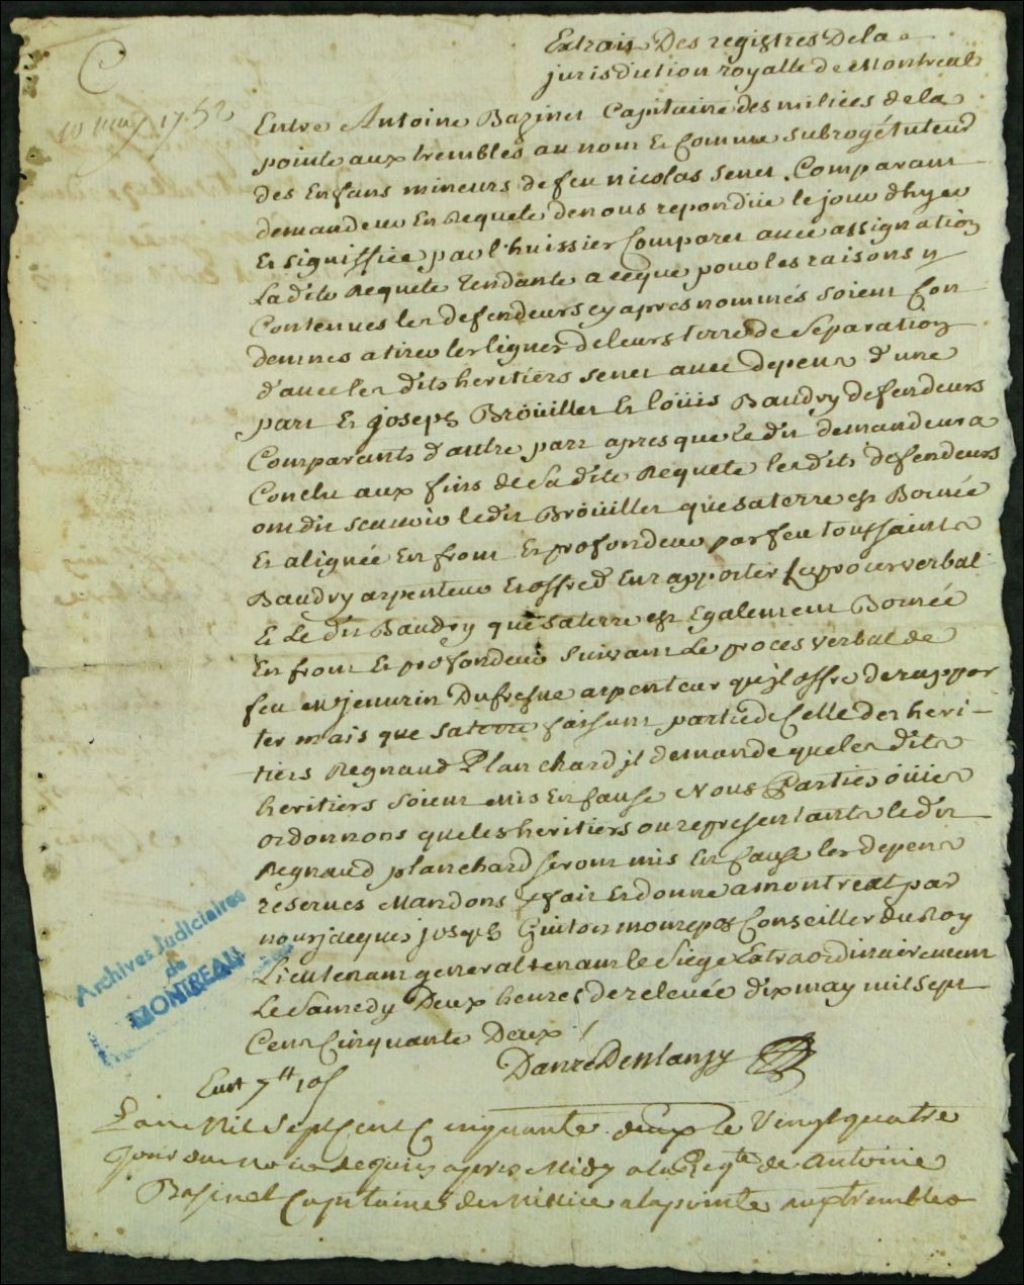 Extrait Des registres De la
jurisdiction royalle de Montreal
C
10 may 1752
Entre Antoine Bazinet Capitaine des milices de la
pointe aux trembles au nom Et Comme subrogé tuteur
des Enfans mineurs de feu nicolas senet Comparant
demandeur En Requete de nous repondüe le jour d'hyer
Et signiffiée par l'huissier Comparet avec assignation
Ladite Requete Tendante a ceque pour les raisons y
Contenues les defendeurs cy apres nommés soient Con
demnes a tirer les lignes de leurs terre de Separation
d'avec les dits heritiers senet avec depens d'une
part Et joseph Bröüillet Et loüis Baudry defendeurs
Comparants d'autre part apres que le dit demandeur a
Conclu aux fins de Sa dite Requete les dits defendeurs
ont dit scavoir le dit Bröüillet que sa terre est Bornée
Et alignée En front Et profondeur par feu toussaint
Baudry arpenteur Et offre d'En rapporter le proces verbal
Et Le dit Baudry que sa terre est Egalement Bornée
En front Et profondeur suivant Le proces verbal de
feu mr jenurin Dufresne arpenteur qu'jl offre de rappor
ter mais que sa terre faisant partie de Celle des heri-
tiers Regnaud Planchard jl demande que les dits
heritiers soient mis En Cause Nous Parties öüies
ordonnons que les heritiers ou representants le dit
Regnaud planchard seront mis En Cause les depens
reservés Mandons &fait Et donné a montreal par
nous jacques joseph Guiton monrepos Conseiller du Roy
Lieutenant general tenant le Siege Extraordinairement
Le Samedy Deux heures de relevée dix may mil sept
Cent Cinquante Deux /
Danré De Blanzy
7tt 10s
L'an Mil Sept Cent Cinquante deux le Vingt quatre
Jour du mois de juin apres Midy a la Reqte de Antoine
Basinet Capitaine de Milice a la pointe aux trembles
Archives Judiciaires
de
MONTREAL